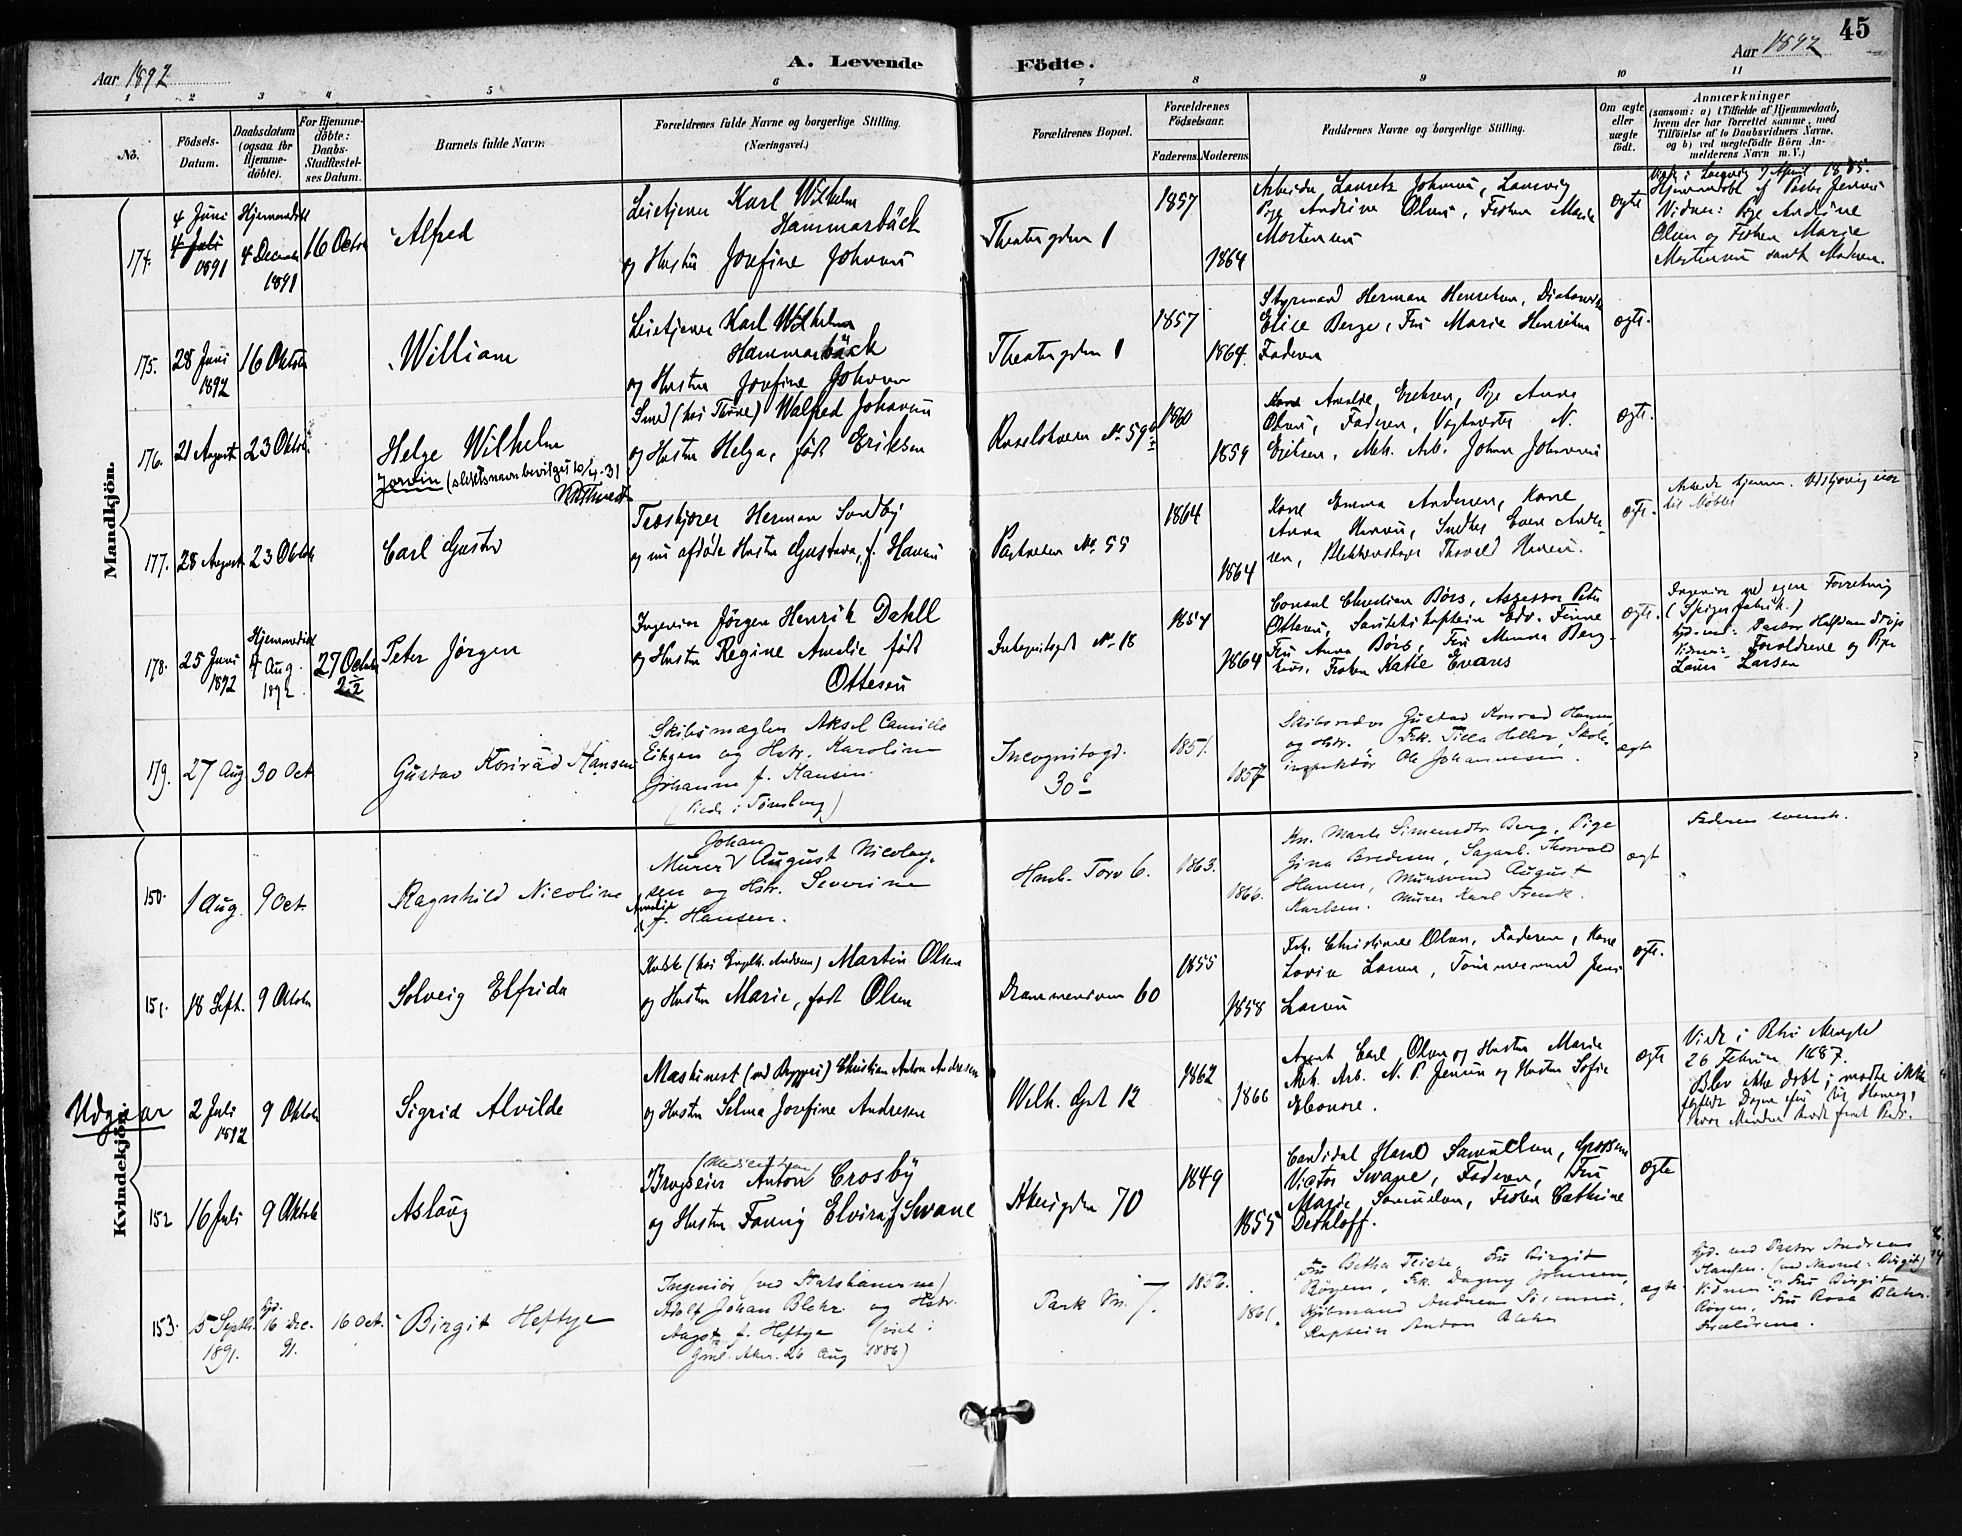 45
Aar 1892
A. Levende Födte.
Aar 1892
1 2 3 4 5 6 7 8 9 10 11
No.
Födsels-Datum.
Daabsdatum (ogsaa for Hjemme-döbte).
For Hjemme-döbte: Daabs-Stadfæstel-ses Datum.
Barnets fulde Navn.
Forældrenes fulde Navne og borgerlige Stilling.
(Næringsvei.)
Forældrenes Bopæl.
Forældrenes Födselsaar.
Faderens. Moderens.
Faddernes Navne og borgerlige Stilling.
Om ægte eller uægte födt.
Anmærkninger
(saasom: a) i Tilfælde af Hjemmedaab,
hvem der har forrettet samme, med
Tilföielse af to Daabsvidners Navne.
og b) ved uægtefödte Börn An-
melderens Navn m. V.)
Mandkjön.
174. 4 Juni 4 Juli 1891
Hjemmedøbt 4 Decembr 1891
16 Octbr
Alfred
Leietjener Karl Wilhelm
Hammarbäck
og Hustru Josefine Johnsen
Theatergaden 1
1857
1864
Arbeider Lauretz Johnsen, Laurvig
Pige Andrine Olsen, Frøken Marie
Mortensen
ægte
Viede i Laurvig 7 April 1885.
Hjemmedøbt af Pastor Jensen
Vidner: Pige Andrine
Olsen og Frøken Marie
Mortensen samt Moderen.
175. 28 Juni 1892
16 Oktober
William
Leietjener Karl Wilhelm
Hammarbäck
og Hustru Josefine Johnsen
Theatergaden 1
1857
1864.
Styrmand Herman Henriksen,
Elise Berge, Fru Marie Henriksen
Faderen
ægte.
176. 21 August 23 Oktober
Helge Wilhelm
Jorvin (slektsnavn bevilget 10/4-31
Smed (hos Thune) Walfred Johansen
og Hustru Helga, født Eriksen
No 59 b
1860
1859
Kone Amalie Eriksen, Pige Anna
Olsen, Faderen, N.
Eriksen, Mek. Arb. Johan Johansen
ægte.
177. 28 August 23 Oktober
Carl Gustav
Herman Sundby
og nu afdøde Hustru Gustava, f. Hansen
Parkveien No 55
1864
1864
Kone Emma Andersen, Kone
Anna Hansen, Snedker Even Ander-
sen, Blikkenslager Thorvald Hansen.
ægte.
178. 25 Juni 1892
Hjemmedøbt 4 Aug. 1892
27 October 2/2
Peter Jørgen
Ingeniør Jørgen Henrik Dahll
og Hustru Regine Amalie født
Ottesen
Inkognitogd No 18
1854
1864
Consul Christian Børs, Assessor Peter
Ottesen, Sanitetskaptein Edv. Finne
Fru Anna Børs, Fru Menna Berg-
hus, Frøken Katie Evans
ægte.
Ingeniør ved egen Forretning
(Spigerfabrik.)
Hjd. ved: Pastor Halfdan
Vidner: Forældrene og Pige
Laura Larsen
179. 27 Aug 30 Oct
Gustav Konrad Hansen
Skibsmægler Aksel Camillo
Eitzen og Hstr. Karoline
Johanne f. Hansen.
(Viede i Tønsberg)
Incognitogd.
30 c
1851.
1857
Skibsreder Gustav Konrad Hansen
og Hstr. Frk. Tilla Heller, Skole-
inspektør Ole Johannesen.
ægte
Kvindekjön.
150. 1 Aug. 9 Oct.
Ragnhild Nicoline
Johan
Murer August Nicolay-
sen og Hstr. Severine
Amalie f. Hansen.
Hank. Torv 6.
1863.
1866.
Kn. Marte Simensdtr Berg, Pige
Gina Bredesen, Sagarb. Thorvald
Hansen, Mursvend August
Karlsen. Murer Karl Frank.
ægt
Faderen svensk.
151. 18 Sept. 9 Oktober
Solveig Elfrida
Kusk (hos Andresen) Martin Olsen
og Hustru Marie, født Olsen
Drammensveien 60
1855
1858
Frk. Christine Olsen, Faderen, Kone
Lovise Larsen, Tømmermand Jens
Larsen
ægte.
Udgaar
2 Juli 1892
9 Oktober
Sigrid Alvilde
Maskinist (ved Bryggeri) Christian Anton Andresen
og Hustru Selma Josefine Andresen
Welh. Gade 12
1862
1866
Agent Carl Olsen og Hustru Marie
Mek. Arb. N. P. Jensen og Hustru Sofie
Eleonore.
ægte
Viede i Petri Menighed
26 Februar 1887.
Blev ikke døbt; mødte ikke
152 16 Juli 9 Oktober
Aslaug
Brugseier Anton Crosby
og Hustru Fanny Elvira f. Swane
Akersgaden 70
1849
1855
Candidat Hans Samuelsen, Grosserer
Victor Swane, Faderen, Fru
Marie Samuelsen, Frøken Cathrine
Dethloff.
ægte
153. 5 Septbr. 1891.
Hjd. 16 Dec. 91.
16 Oct.
Birgit Heftye
Ingeniør (ved Statsbanerne)
Adolf Johan Blehr og Hstr.
Aagot f. Heftye (viet i
Gml. Aker. 26 Aug 1886)
Park Vn. 7.
1856.
1861.
Fru Betha Feiche Fru Birgit
Børgen, Frk. Dagny Johnsen,
Kjøbmand Andreas
Kaptein Anton Blehr
ægte
Hjd. ved Pastor Andreas
Hansen. (ved Navnet: Birgit)
Vidner: Fru Birgit
Fru Rosa Blehr.
Forældrene.